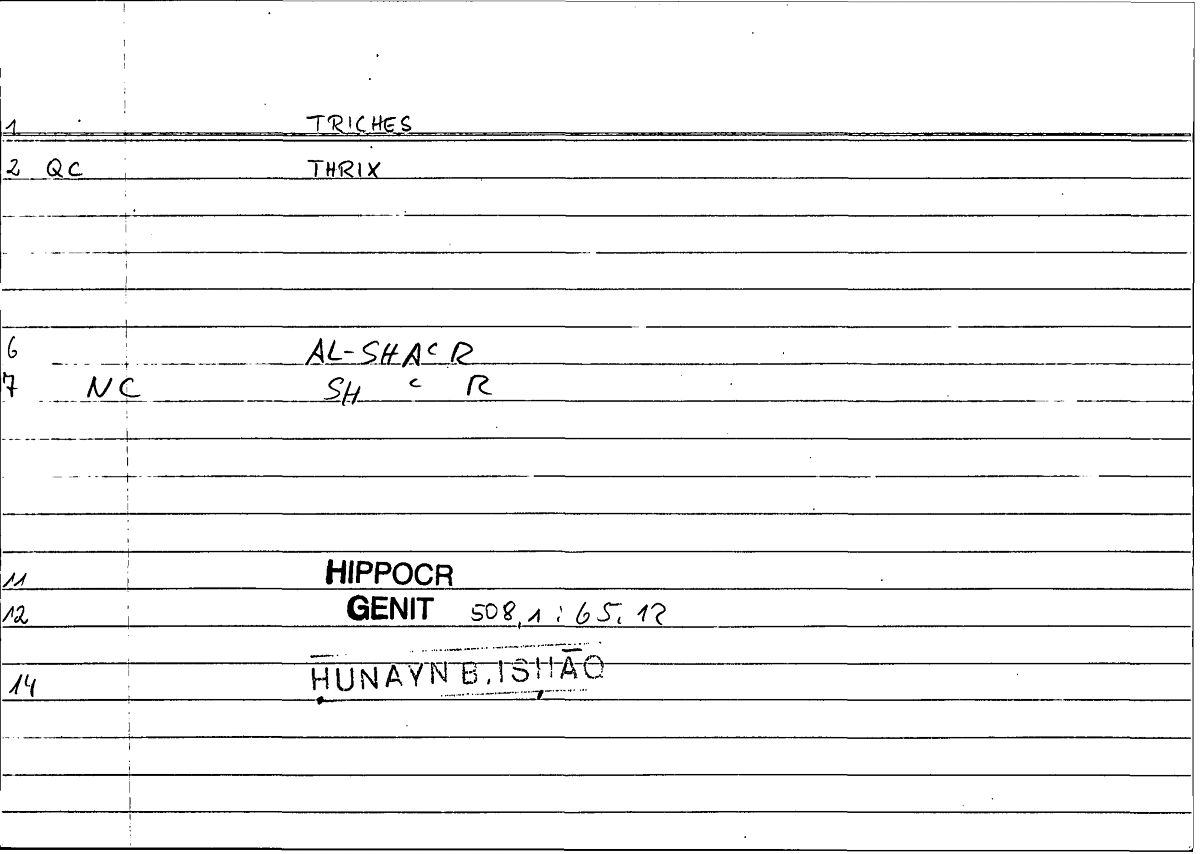 1 TRICHES
2 QC THRIX
6 AL-SHAᶜR
7 NC SH ᶜ R
11 HIPPOCR
12 GENIT 508,1 : 65,12
14 ḤUNAYN B. ISḤĀQ